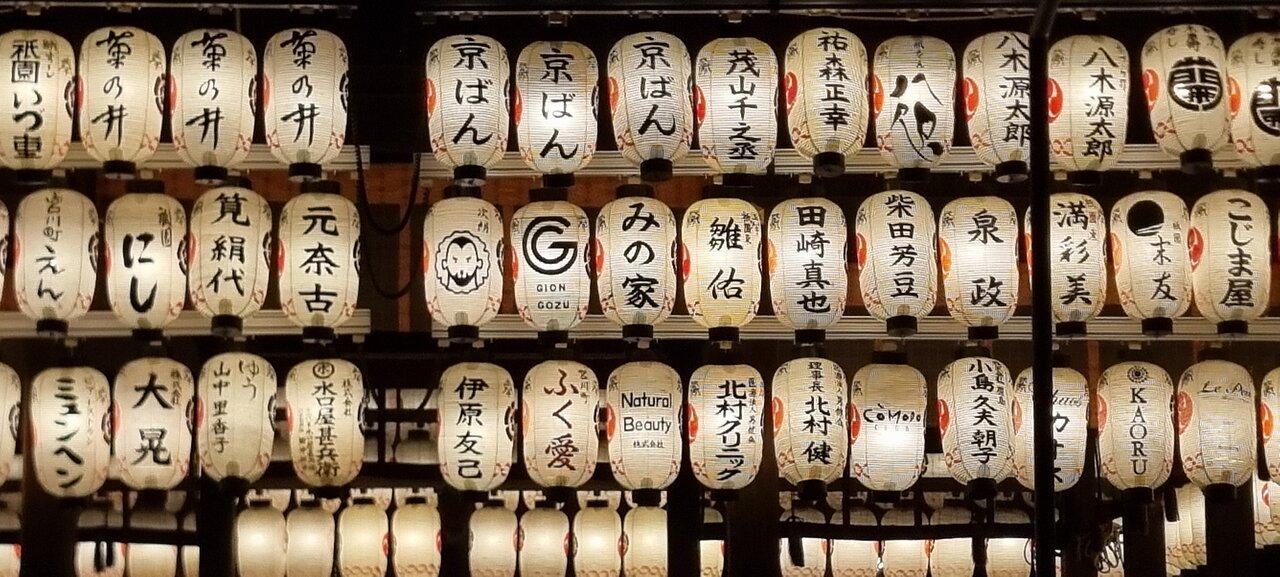 祇園いづ重
菊乃井
菊乃井
菊乃井
京ばん
京ばん
京ばん
茂山千之丞
祐森正幸
八木源太郎
八木源太郎
宮川町
えん
祇園
にし
筧絹代
元奈古
G
GION
GOZU
みの家
雛佑
田崎真也
柴田芳豆
泉政
満彩美
末友
こじま屋
ミュンヘン
株式会社
大晃
ゆう
山中里香子
株式会社
水口屋甚兵衛
伊原友己
ふく愛
Natural
Beauty
株式会社
北村クリニック
理事長
北村健
CòMoDo
小島久夫
朝子
KAORU